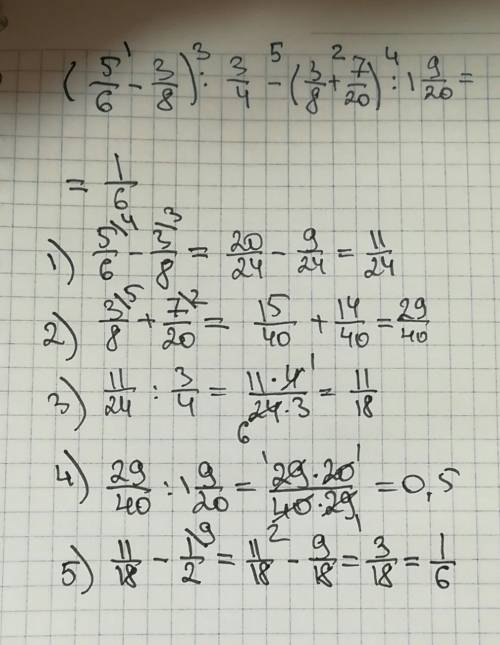 (5/6 -¹ 3/8) :³ 3/4 -⁵ (3/8 +² 7/20) :⁴ 1 9/20 =
= 1/6
1) 5\4/6 - 3\3/8 = 20/24 - 9/24 = 11/24
2) 3\5/8 + 7\2/20 = 15/40 + 14/40 = 29/40
3) 11/24 : 3/4 = 11·4 1/24·3 6 = 11/18
4) 29/40 : 1 9/20 = 1 29·20 1/40·29 2 1 = 0,5
5) 11/18 - 1\9/2 = 11/18 - 9/18 = 3/18 = 1/6